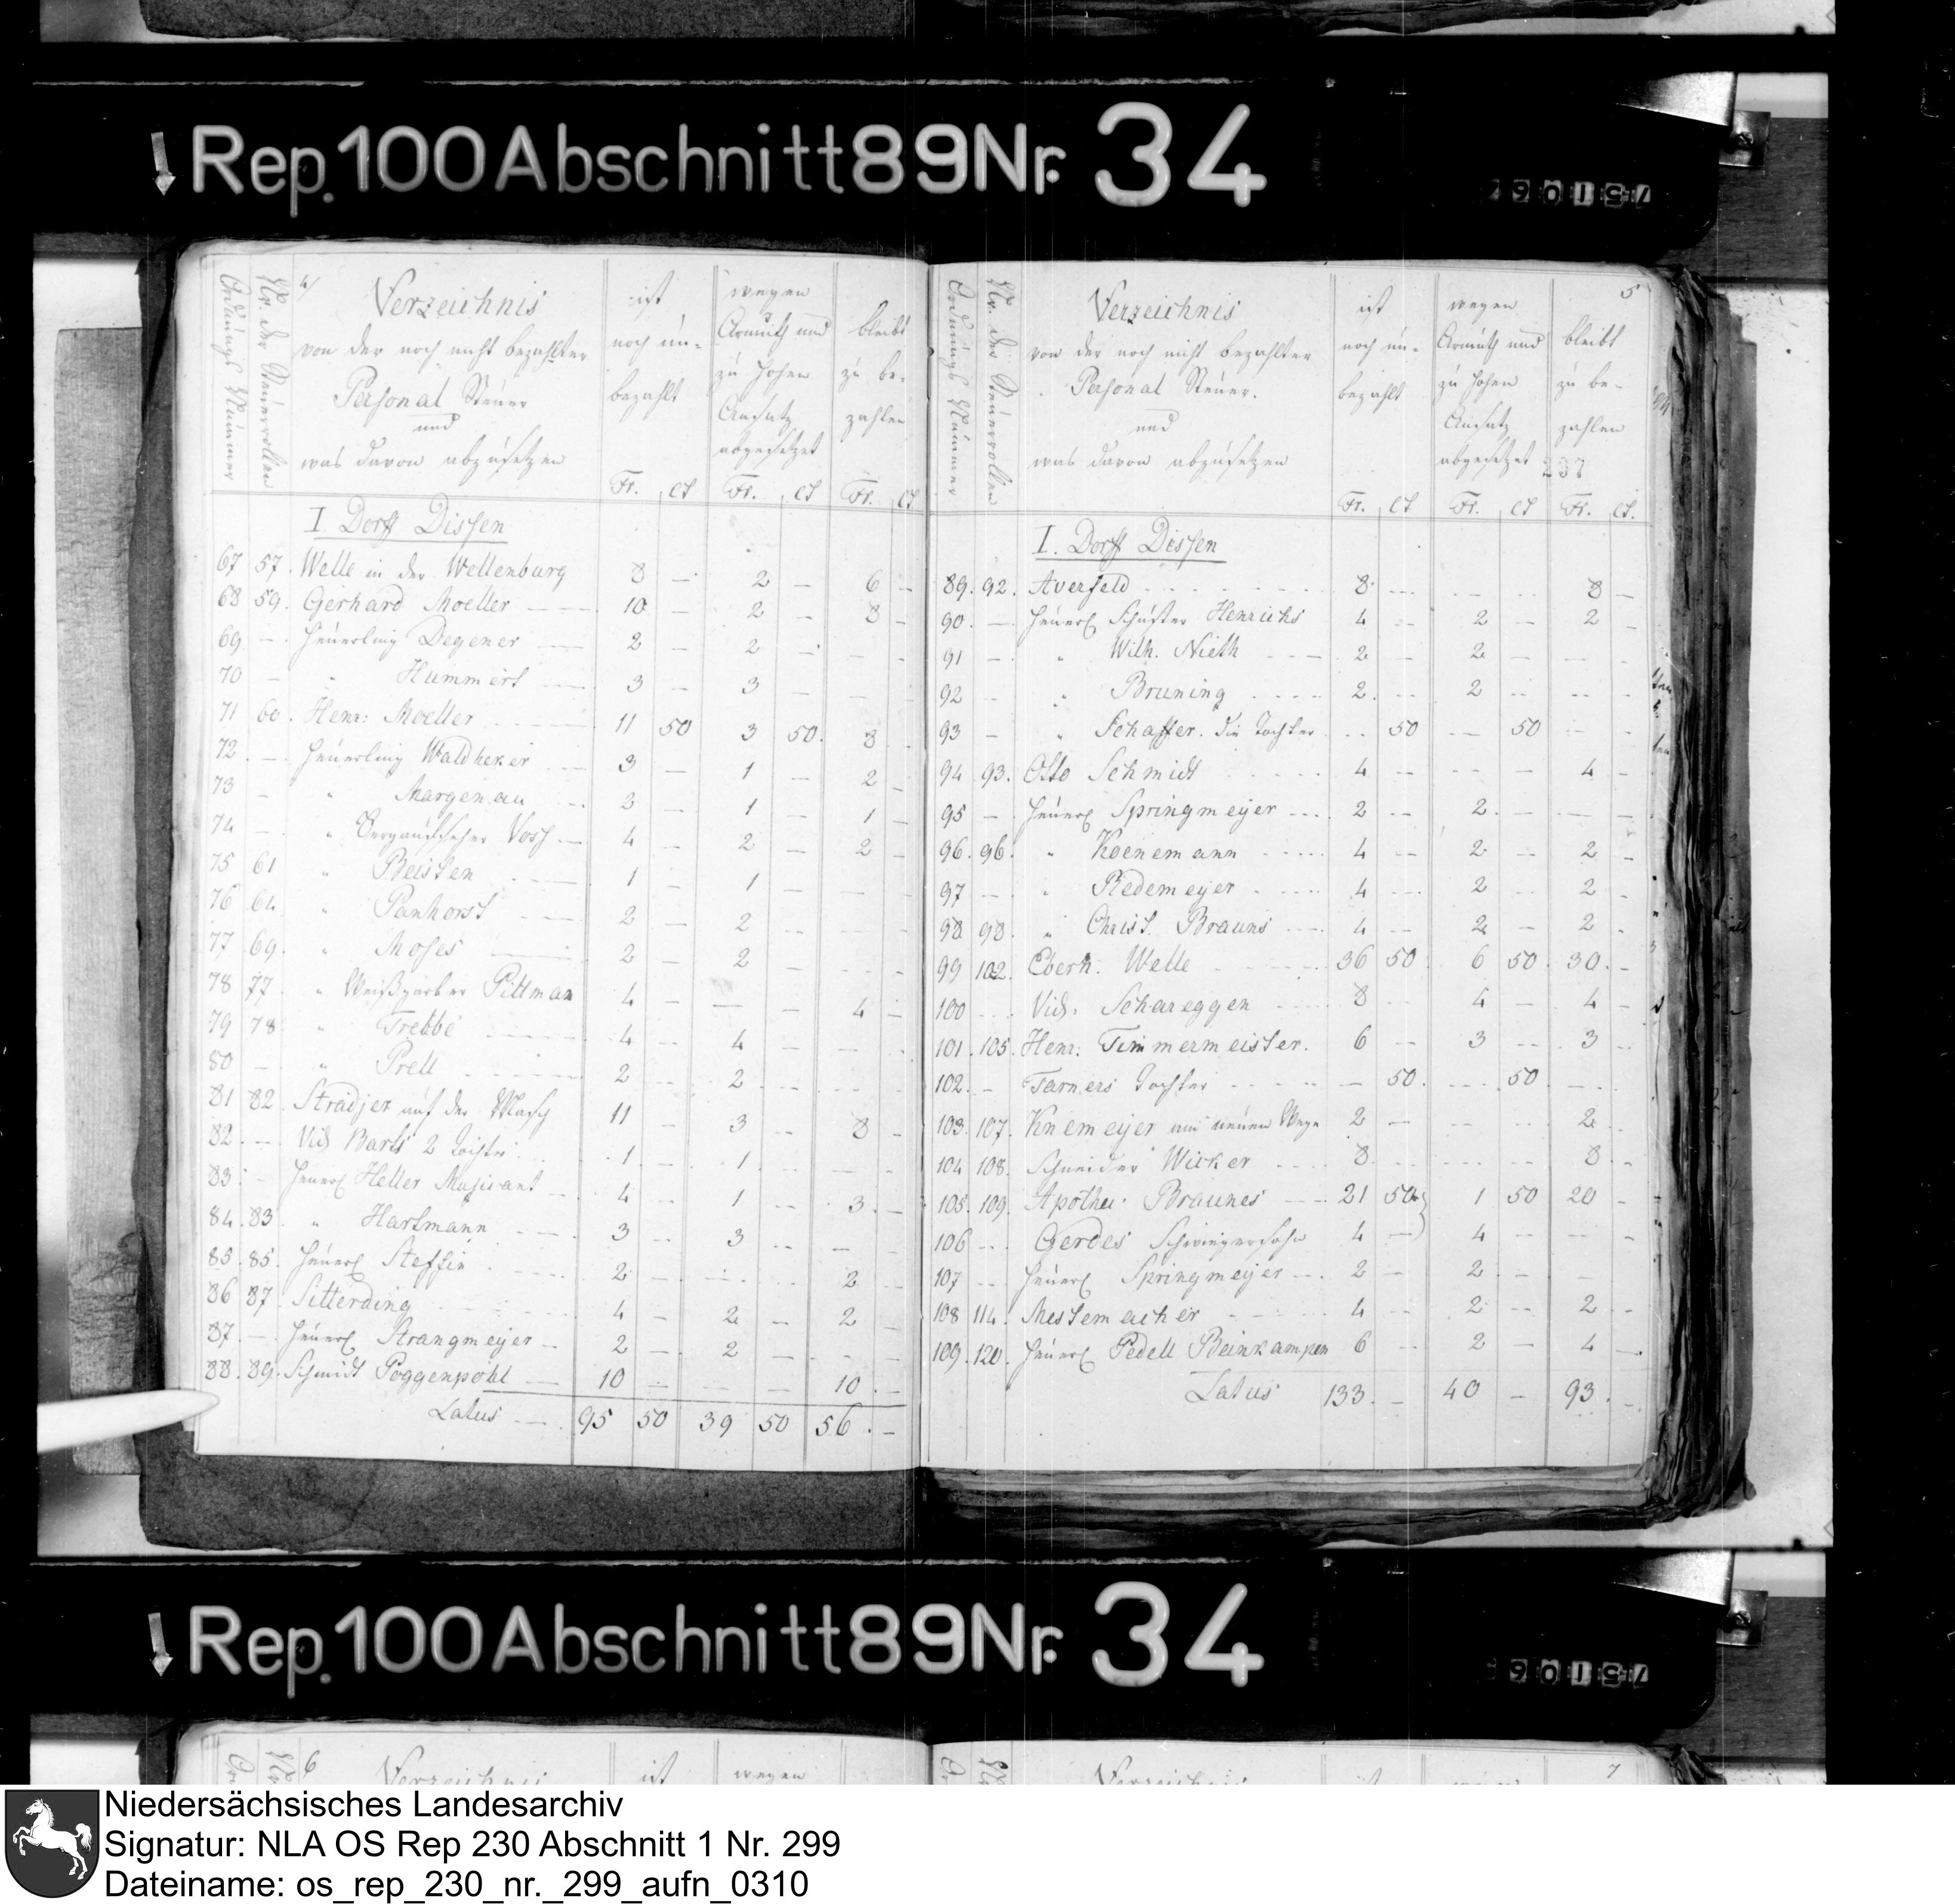 Rep. 100 Abschnitt 89 Nr. 34
4/
Ordnungs Nummer
Nr. der Steuerrollen
Verzeichnis
von der noch nicht bezahlter
Personal Steuer
und
was davon abzusetzen
ist noch un- bezahlt
wegen Armuth und zu hohen Ansatz abgesetzt
bleibt zu be- zahlen
Fr. Ct Fr. Ct Fr. Ct
I Dorff Dissen
67 57. Welle in der Wellenburg 8 — 2 — 6 —
68 59. Gerhard Moeller 10 — 2 — 8 —
69 — Heuerling Degener 2 — 2 — — —
70 — " Hummert 3 — 3 — — —
71 60. Henr: Moeller 11 50 3 50. 8 —
72. — Heuerling Waldheker 3 — 1 — 2 —
73 — " Margenau 2 — 1 — 1 —
74 — " Voss 4 — 2 — 2 —
75 61 " Beisten 1 — 1 — — —
76 64 " Panhorst 2 — 2 — — —
77 69. " Moses 2 — 2 — — —
78 77 " Weißgerber Pittman 4 — — — 4 —
79 78 " Trebbe 4 — 4 — — —
80 — " Prell 2 — 2 — — —
81 82. Stradjer auf der Masch 11 — 3 — 8 —
82. — Vid Barts 2 Töchter 1 — 1 — — —
83 — Heuerl Heller Musicant 4 — 1 — 3 —
84. 83 " Hartmann 3 — 3 — — —
85. 85. Heuerl Steffin 2 — — — 2 —
86 87. Sitterding 4 — 2 — 2 —
87. — Heuerl Strangmeyer 2 — 2 — — —
88. 89. Schmidt Poggenpohl 10 — — — 10. —
Latus 95 50 39 50 56. —
5
Ordnungs Nummer
Nr. der Steuerrollen
Verzeichnis
von der noch nicht bezahlter
Personal Steuer.
und
was davon abzusetzen
ist noch un- bezahlt
wegen Armuth und zu hohen Ansatz abgesetzt
bleibt zu be- zahlen
237
Fr. Ct Fr. Ct Fr. Ct.
I. Dorff Dissen
89. 92. Averfeld 8 — — — 8 —
90. — Heuerl Schuster Henrichs 4 — 2 — 2 —
91 — " Wilh. Nieth 2 — 2 — — —
92 — " Bruning 2 — 2 — — —
93 — " Schaffer. die Tochter — 50 — 50 — —
94 93. Otto Schmidt 4 — — — 4 —
95 — Heuerl Springmeyer 2 — 2 — — —
96. 96. " Koenemann 4 — 2 — 2 —
97 — " Redemeyer 4 — 2 — 2 —
98 98. " Christ. Brauns 4 — 2 — 2 —
99 102. Eberh. Welle 36 50 6 50. 30. —
100 — Vid. Schareggen 8 — 4 — 4 —
101. 105. Henr. Timmermeister. 6 — 3 — 3 —
102. — Farners Tochter — 50. — 50. — —
103. 107. Knemeyer am neuen Wege 2 — — — 2 —
104 108. Schneider Wicker 8 — — — 8 —
105. 109. Apothe. Braunes 21 50 1 50 20 —
106 — Gerdes Schwiegersohn 4 — 4 — — —
107 — Heuerl Springmeyer 2 — 2 — — —
108 114. Mestemacher 4 — 2 — 2 —
109. 120. Heuerl Pedell Beinkampen 6 — 2 — 4 —
Latus 133. — 40 — 93. —
Rep. 100 Abschnitt 89 Nr. 34
6
Verzeichnis
ist
wegen
Verzeichnis
7
Niedersächsisches Landesarchiv
Signatur: NLA OS Rep 230 Abschnitt 1 Nr. 299
Dateiname: os_rep_230_nr._299_aufn_0310